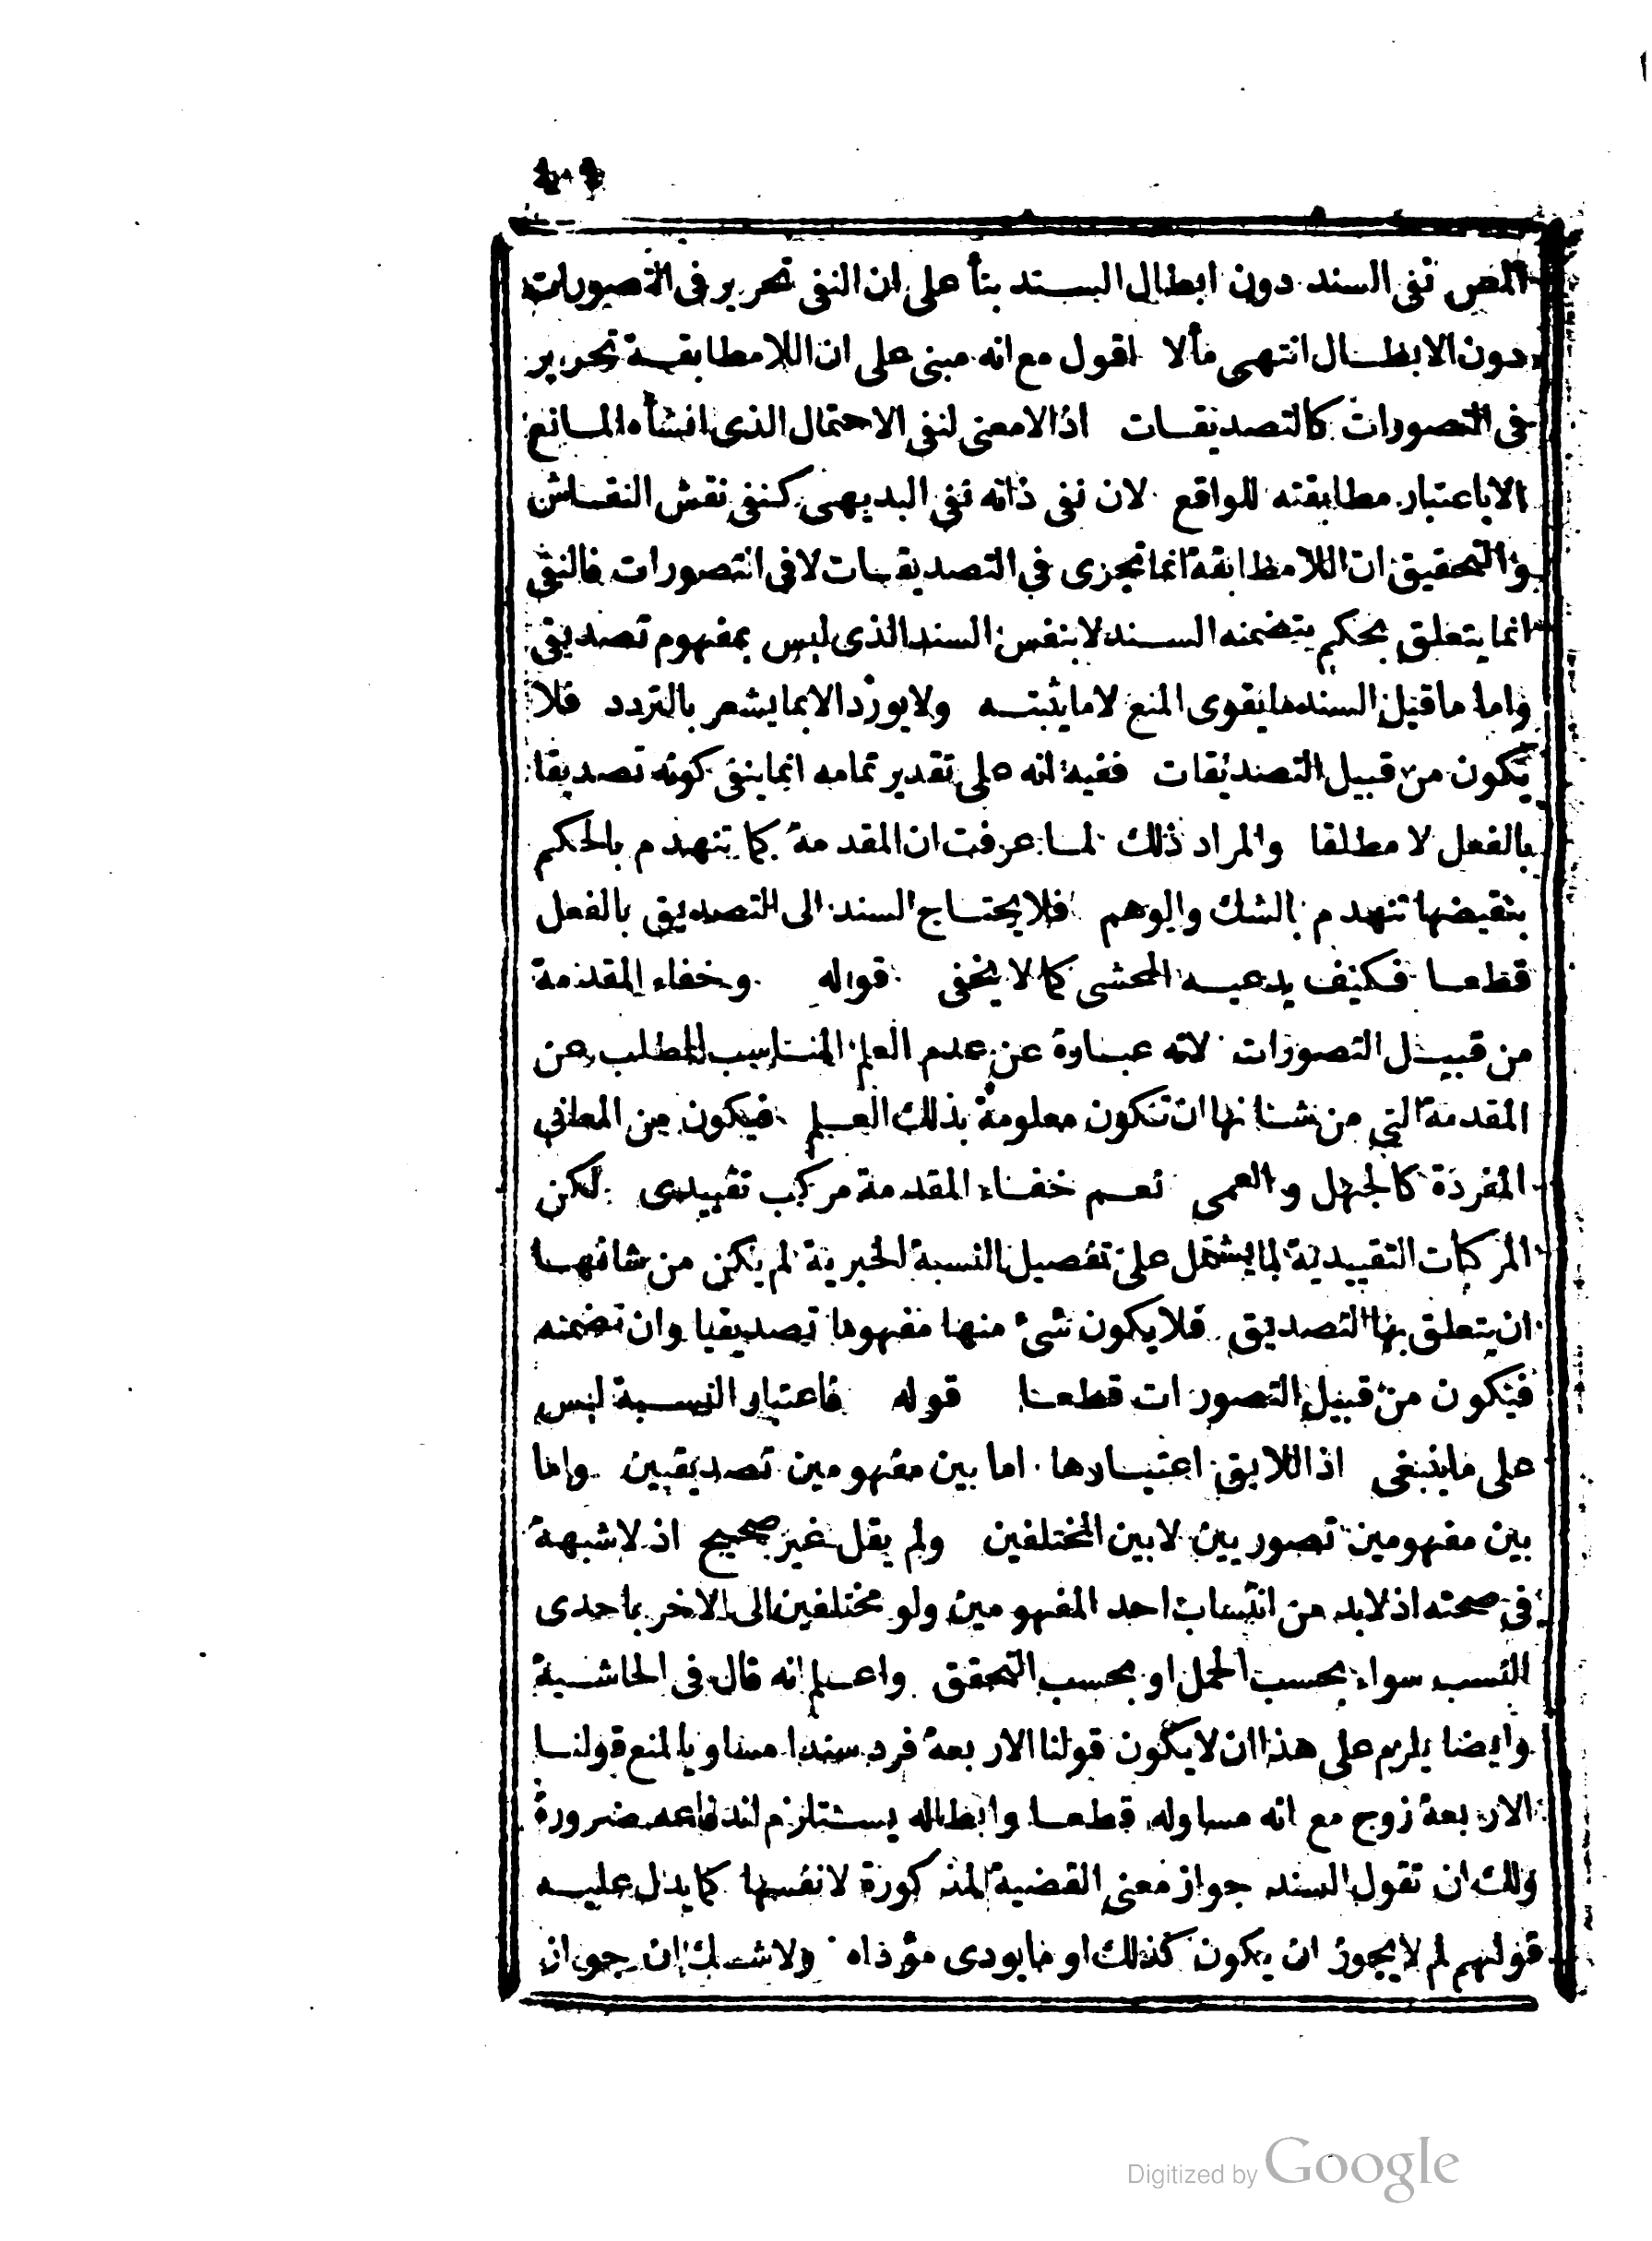 المص نفى السند دون ابطال السند بنأ على ان النفى تحرير فى التصورات
دون الابطال انتهى مألا اقول مع انه مبنى على ان اللامطابقة تحرير
فى التصورات كالتصديقات اذ لا معنى لنفى الاحتمال الذى انشأه المانع
الا باعتبار مطابقته للواقع لان نفى ذاته نفى البديهى كنفى نقش النقاش
والتحقيق ان اللامطابقة انما تجرى فى التصديقات لا فى التصورات فالنفى
انما يتعلق بحكم يتضمنه السند لا بنفس السند الذى ليس بمفهوم تصديقى
واما ما قيل السند ما يقوى المنع لا ما يثبته ولا يورد الا بما يشعر بالتردد فلا
يكون من قبيل التصديقات ففيه انه على تقدير تمامه انما ينفى كونه تصديقا
بالفعل لا مطلقا والمراد ذلك لما عرفت ان المقدمة كما تنهدم بالحكم
بنقيضها تنهدم بالشك والوهم فلا يحتاج السند الى التصديق بالفعل
قطعا فكيف يدعيه المحشى كما لا يخفى قوله وخفاء المقدمة
من قبيل التصورات لانه عبارة عن عدم العلم المناسب للمطلب عن
المقدمة التى من شانها ان تكون معلومة بذلك العلم فيكون من المعانى
المفردة كالجهل والعمى نعم خفاء المقدمة مركب تقييدى لكن
المركبات التقييدية لما يشتمل على تفصيل النسبة الخبرية لم يكن من شانها
ان يتعلق بها التصديق فلا يكون شئ منها مفهوما تصديقيا وان تضمنه
فيكون من قبيل التصورات قطعا قوله فاعتبار النسبة ليس
على ما ينبغى اذ اللايق اعتبارها اما بين مفهومين تصديقيين واما
بين مفهومين تصوريين لا بين المختلفين ولم يقل غير صحيح اذ لا شبهة
فى صحته اذ لا بد من انتساب احد المفهومين ولو مختلفين الى الاخر باحدى
النسب سواء بحسب الحمل او بحسب التحقق واعلم انه قال فى الحاشية
وايضا يلزم على هذا ان لا يكون قولنا الاربعة فرد سندا مساويا لمنع قولنا
الاربعة زوج مع انه مساو له قطعا وابطاله يستلزم اندفاعه ضرورة
ولك ان تقول السند جواز معنى القضية المذكورة لا نفسها كما يدل عليه
قولهم لم لا يجوز ان يكون كذلك او ما يودى مؤداه ولا شك ان جواز
Digitized by Google